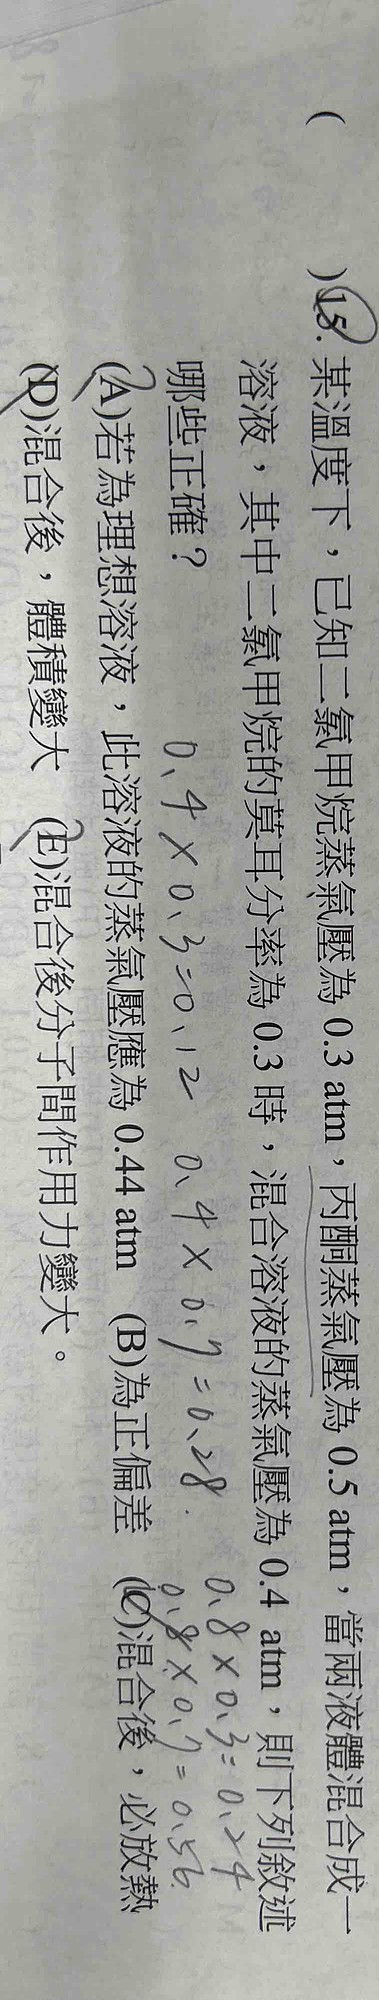 ( )15. 某溫度下，已知二氯甲烷蒸氣壓為 0.3 atm，丙酮蒸氣壓為 0.5 atm，當兩液體混合成一
溶液，其中二氯甲烷的莫耳分率為 0.3 時，混合溶液的蒸氣壓為 0.4 atm，則下列敘述
哪些正確？
0.4×0.3=0.12 0.4×0.7=0.28
0.8×0.3=0.24
0.8×0.7=0.56
(A)若為理想溶液，此溶液的蒸氣壓應為 0.44 atm (B)為正偏差 (C)混合後，必放熱
(D)混合後，體積變大 (E)混合後分子間作用力變大。